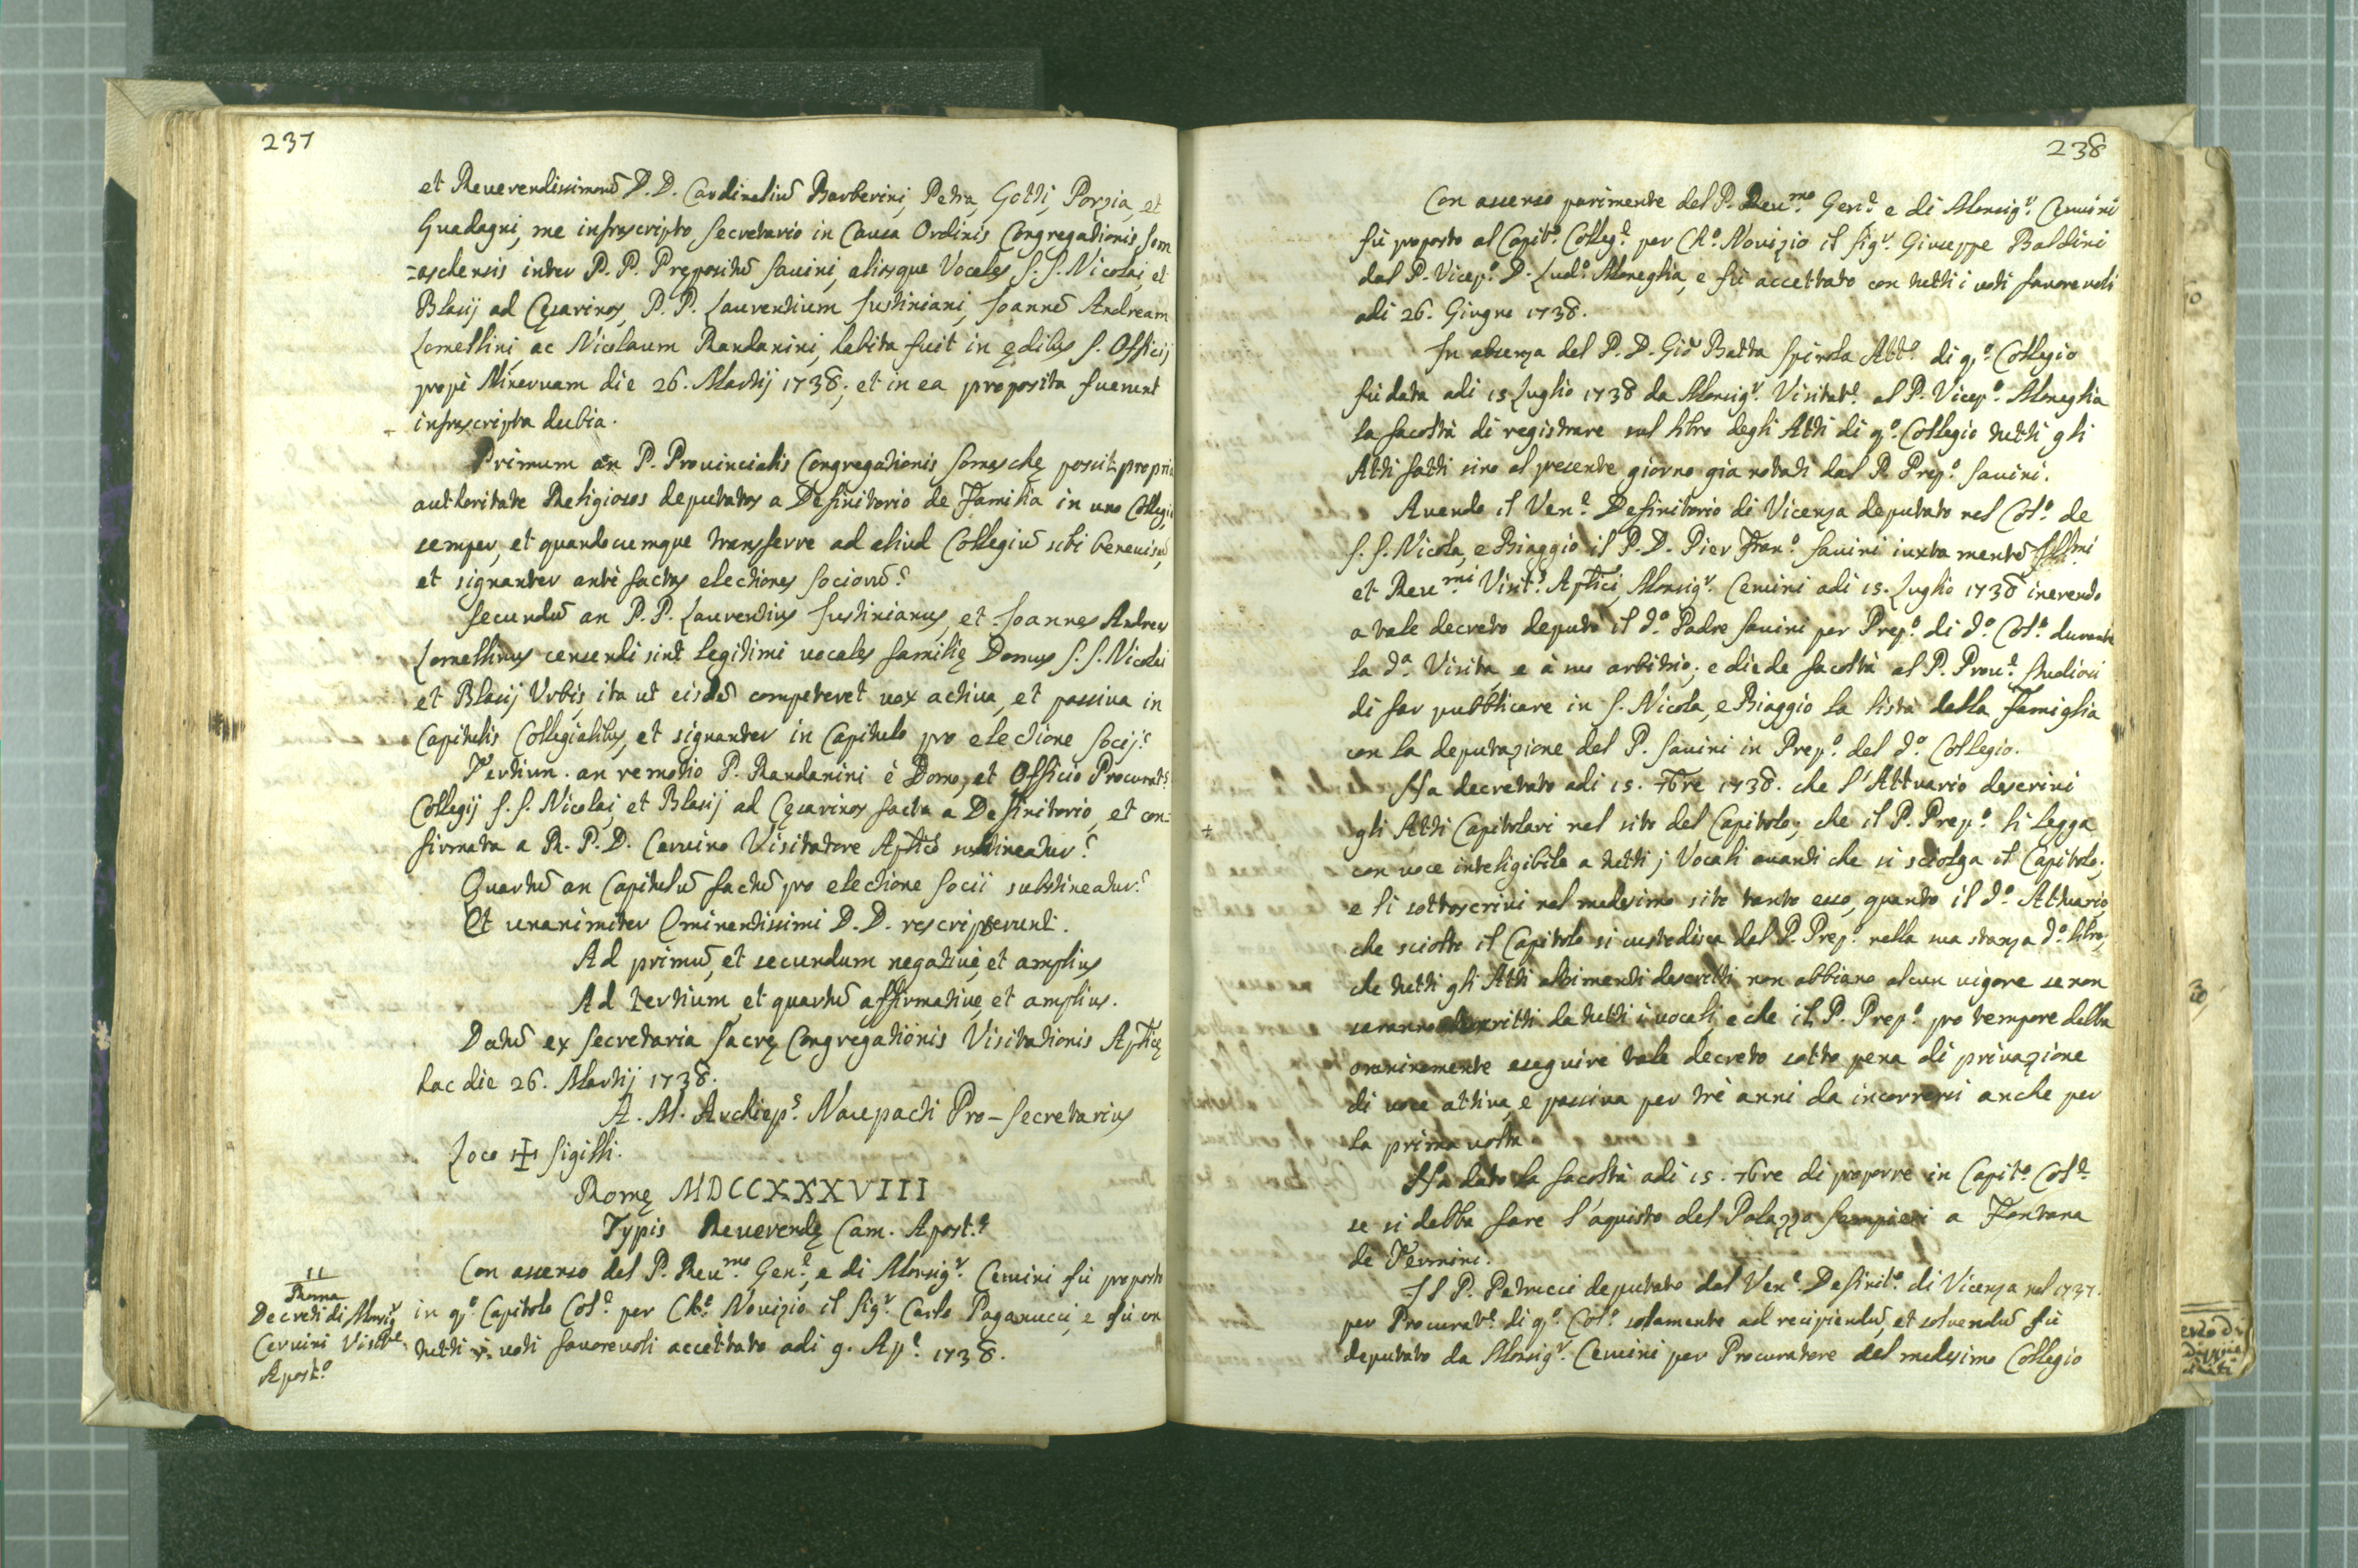 237
et Reuerendissimorū D.D. Cardinaliū Barberini, Petra, Gotti, Porzia, et
Guadagni, me infrascripto Secretario in Causa Ordinis Congregationis Som
=aschensis inter P. P. Prępositū Sauini, aliosque Vocales S. S. Nicolai, et
Blasij ad Cęsarinos, P. P. Laurentium Justiniani, Joannē Andream
Lomellini, ac Nicolaum Randanini, habita fuit in ędibus S. Officij
propè Mineruam die 26. Martij 1738; et in ea proposita fuerunt
infrascripta dubia.
Primum an P. Prouincialis Congregationis Somaschę possit propria
authoritate Religiosos deputatos a Definitorio de Familia in uno Collegio
semper, et quandocumque transferre ad aliud Collegiū sibi beneuisū,
et signanter antè factas electiones Sociorū?
Secundū an P. P. Laurentius Justinianus, et Joannes Andreas
Lomellinus censendi sint legitimi uocales familię Domus S. S. Nicolai
et Blasij Vrbis, ita ut eisdē competeret uox actiua, et passiua in
Capitulis Collegialibus, et signanter in Capitulo pro electione Socij?
Tertium. an remotio P. Randanini è Domo, et Officio Procurat.s
Collegij S. S. Nicolai, et Blasij ad Cęsarinos facta a Definitorio, et con=
firmata a R. P. D. Ceruino Visitatore Aplicō sustineatur?
Quartū an Capitulū factū pro electione Socii substineatur?
Et unanimiter Eminentissimi D.D. rescripserunt.
Ad primū, et secundum negatiuè, et amplius
Ad tertium, et quartū affirmatiuę, et amplius.
Datū ex Secretaria Sacrę Congregationis Visitationis Aplicę
hac die 26. Martij 1738.
A. M. Archiep.s Naupacti Pro-Secretarius
Loco + Sigilli.
Romę MDCCXXXVIII
Typis Reuerendę Cam. Apost.ę
11
Roma
Decreti di Monsig.r
Ceruini Visit.e
Apost.o
Con assenso del P. Reu.mo Gen.e, e di Monsig.r Ceruini fù proposto
in q.o Capitolo Col.e per Ch.o Nouizio il Sig.r Carlo Paganucci, e fù con
tutti i uoti fauoreuoli accettato adi 9. Ap.e 1738.
238
Con assenso parimente del P. Reu.mo Gen.e e di Monsig.r Ceruini
fù proposto al Capit.o Colleg.e per Ch.o Nouizio il Sig.r Giuseppe Baldini
dal P. Vicep.o D. Lud.o Meneglia, e fù accettato con tutti i uoti fauoreuoli
adi 26. Giugno 1738.
In absenza del P. D. Giō Batta Spinola Att.o di q.o Collegio
fù data adi 15 Luglio 1738 da Monsig.r Visitat.e al P. Vicep.o Meneglia
la facoltà di registrare sul libro degli Atti di q.o Collegio tutti gli
Atti fatti sino al presente giorno già notati dal P. Prep.o Sauini.
Auendo il Ven.e Definitorio di Vicenza deputato nel Col.o de
S. S. Nicola, e Biaggio il P. D. Pier Fran.o Sauini iuxta mentē Illmi
et Reu.mi Visit.s Aplici, Monsig.r Ceruini adi 15. Luglio 1738 inerendo
a tale decreto deputò il d.o Padre Sauini per Prep.o di d.o Col.o durante
la d.a Visita, e à suo arbitrio; e diede facoltà al P. Prou.e Studiosi
di far pubblicare in S. Nicola, e Biaggio la lista della Famiglia
con la deputazione del P. Sauini in Prep.o del d.o Collegio.
Ha decretato adi 15. 7bre 1738. che l'Attuario descriui
+
gli Atti Capitolari nel sito del Capitolo; che il P. Prep.o li legga
con uoce inteligibile a tutti j Vocali auanti che si sciolga il Capitolo;
e li sottoscriui nel medesimo sito tanto esso, quanto il d.o Attuario,
che sciolto il Capitolo si custodisca dal P. Prep.o nella sua stanza d.o libro;
che tutti gli Atti altrimenti descritti non abbiano alcun uigore se non
saranno descritti da tutti i uocali, e che il P. Prep.o pro tempore debba
onninamente eseguire tale decreto sotto pena di priuazione
di uoce attiua, e passiua per trè anni da incorrersi anche per
la prima uolta
Ha dato la facoltà adi 15. 7bre di proporre in Capit.o Col.e
se si debba fare l'aquisto del Palazzo Sampieri a Fontana
de Termini.
Il P. Petrucci deputato dal Ven.e Definit.o di Vicenza nel 1737.
per Procurat.e di q.o Col.o solamente ad recipiendū, et soluendū fù
deputato da Monsig.r Ceruini per Procuratore del medesimo Collegio